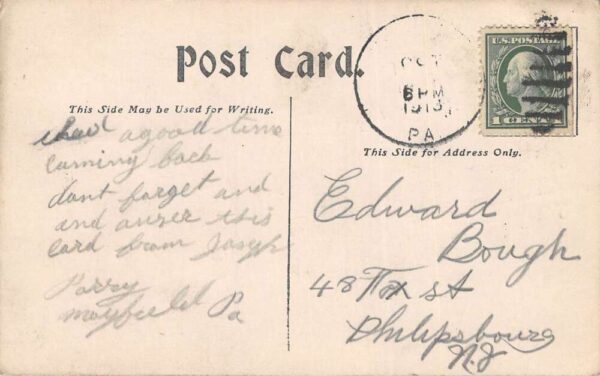 Post Card.
This Side May be Used for Writing.
This Side for Address Only.
OCT
6 PM
1913
PA.
U.S. POSTAGE
1 CENT 1
i had a good time
coming back
dont forget and
and anser this
card from Joseph
Parry
mayfield Pa
Edward
Bough
48 st
Philipsbourg
N.J